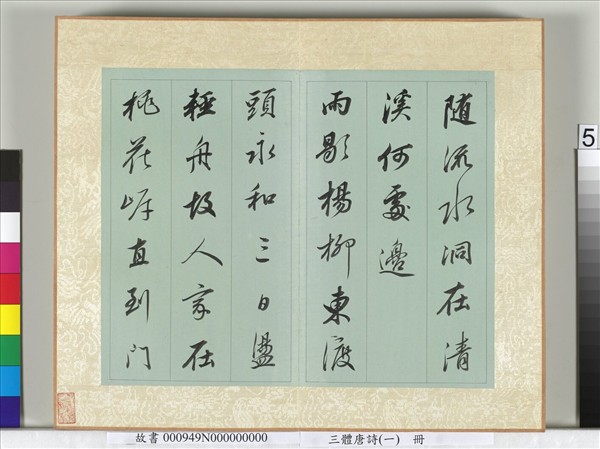 随流水洞在清
溪何處邊
雨歇楊柳東渡
頭永和三日盪
輕舟故人家在
桃花岸直到門
故書 000949N000000000
三體唐詩(一) 冊
5